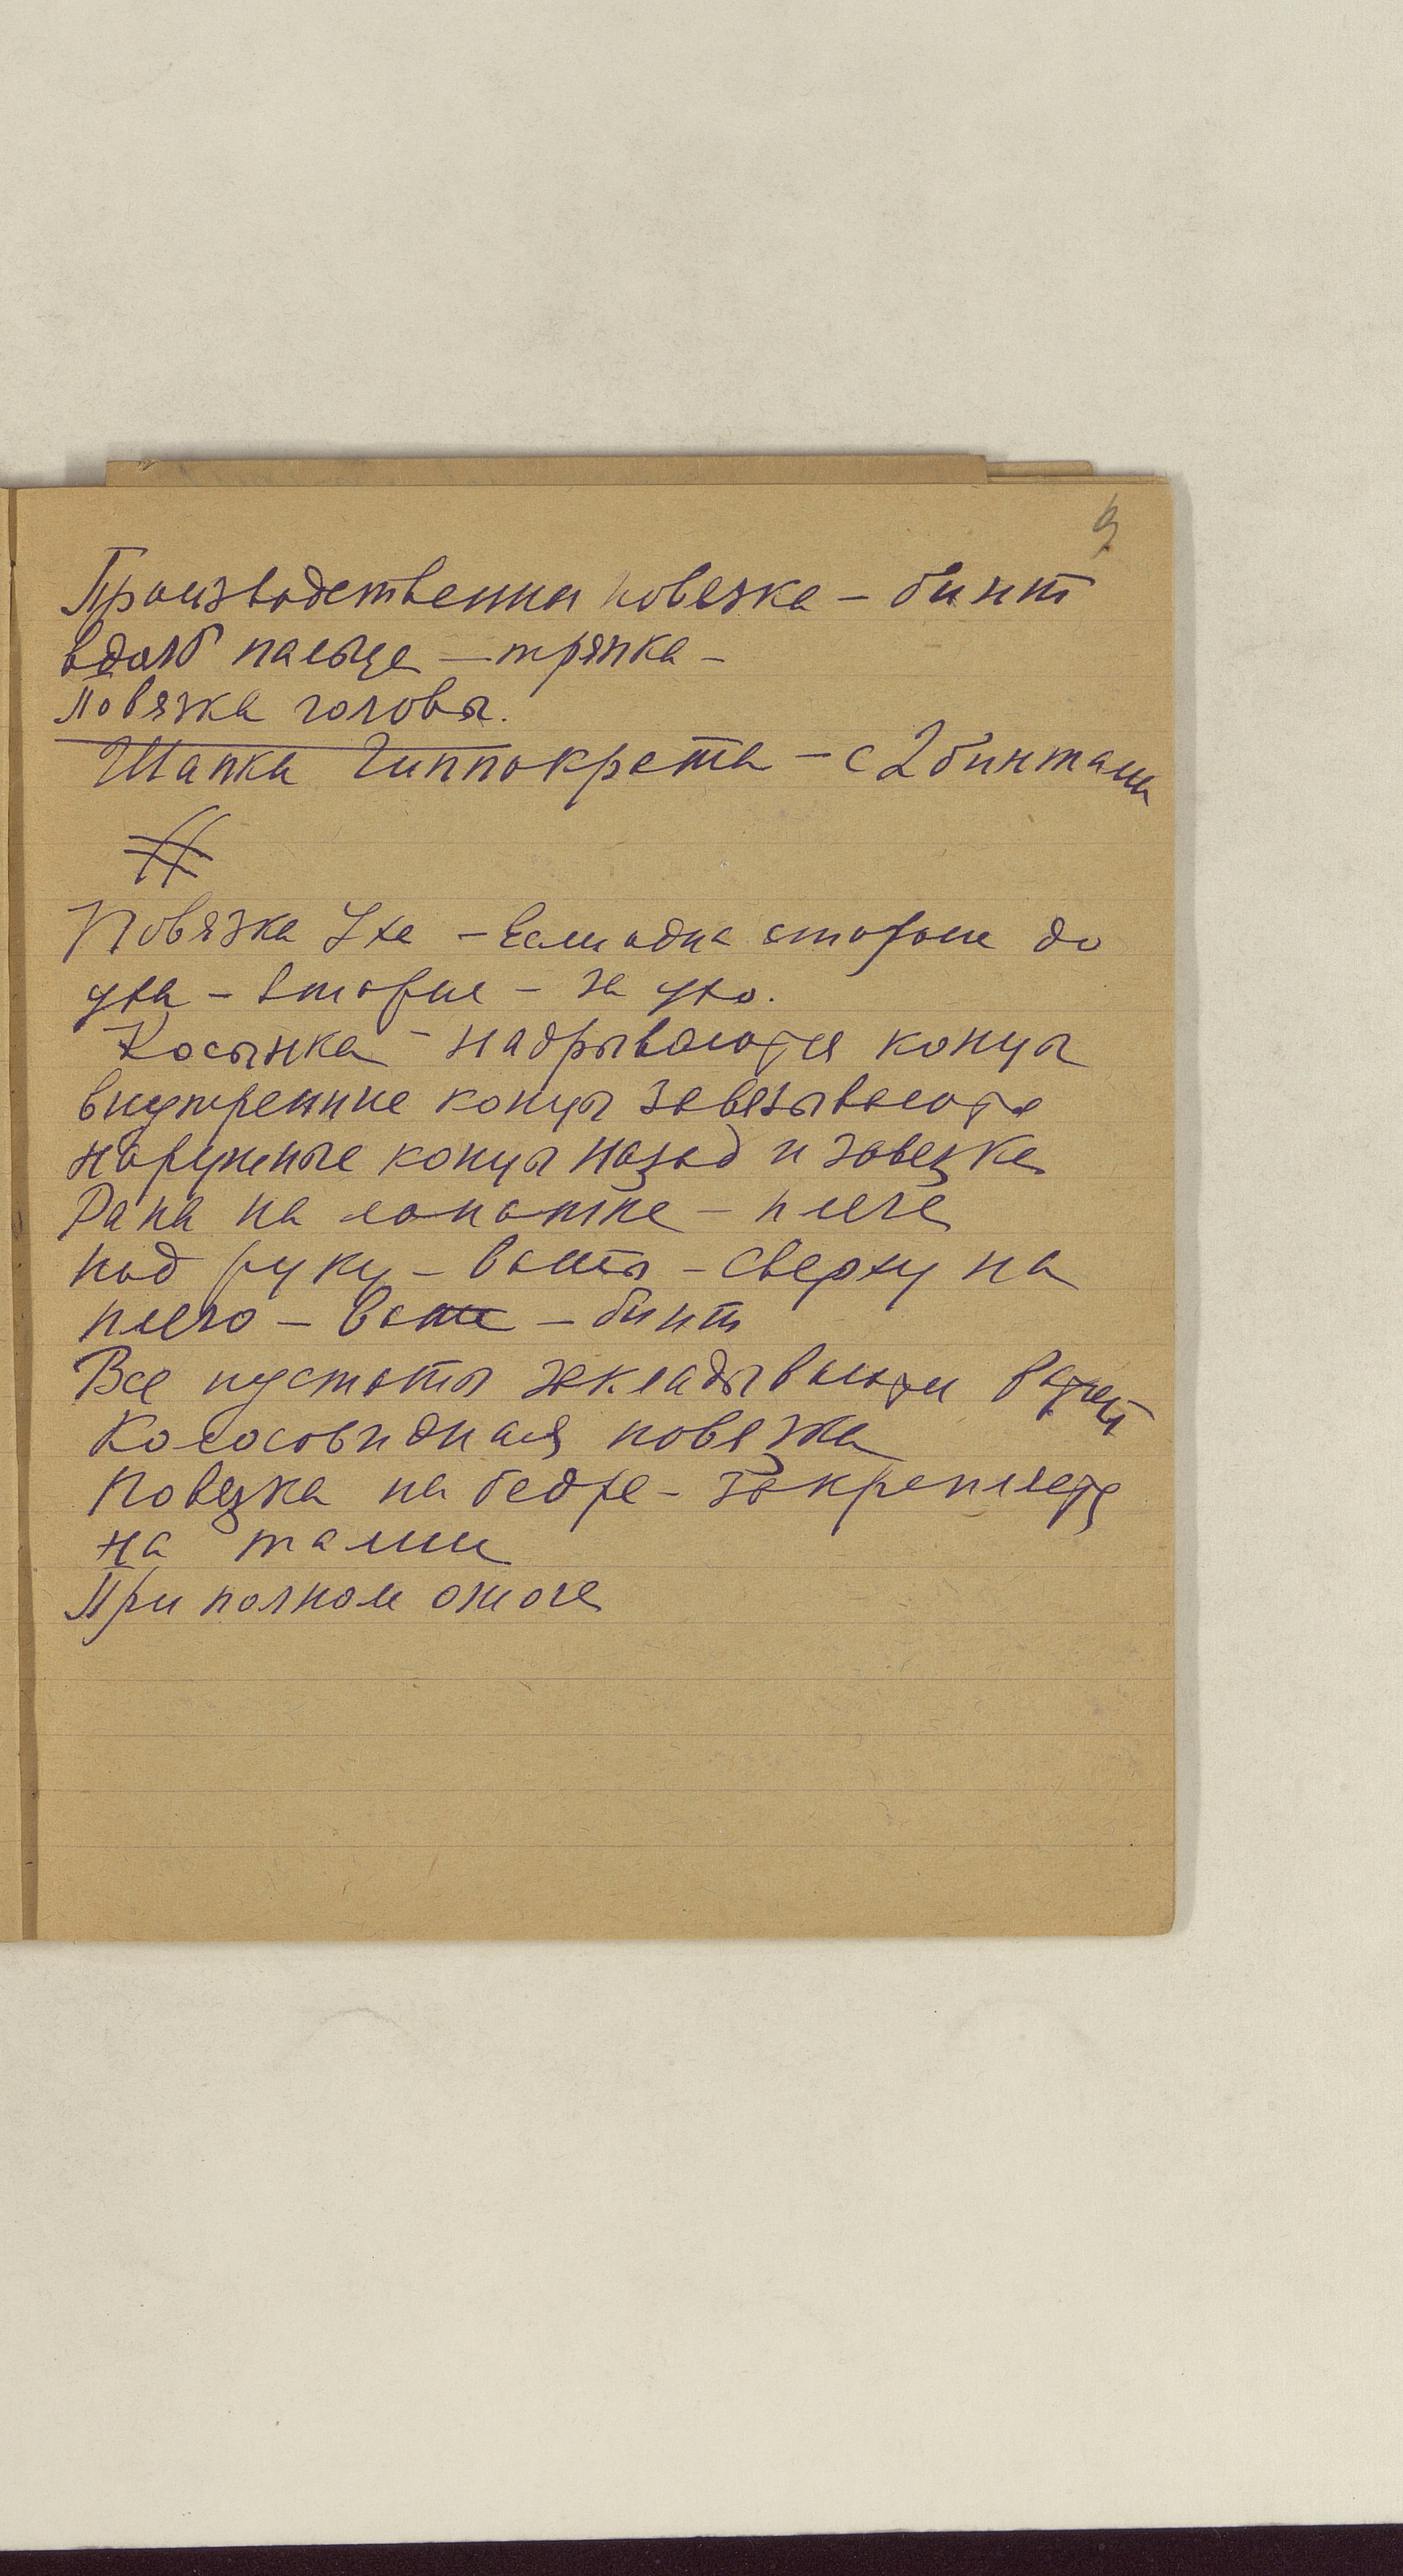 9
Производственны повязка – бинт
вдоль пальца – тряпка –
Повязка головы.
Шапка Гиппократа – с 2 бинтами
Повязка Уха – Если одна сторона до
уха – вторая – за ухо.
Косынка – надрываются концы
внутренние концы завязываются
наружные концы назад и завязка
Рана на лопатке – плече
под руку – вата – сверху на
плечо – вата – бинт
Все пустоты закладываются ватой
Колосовидная повязка
Повязка на бедре – закрепляется
на талии
При полном ожоге